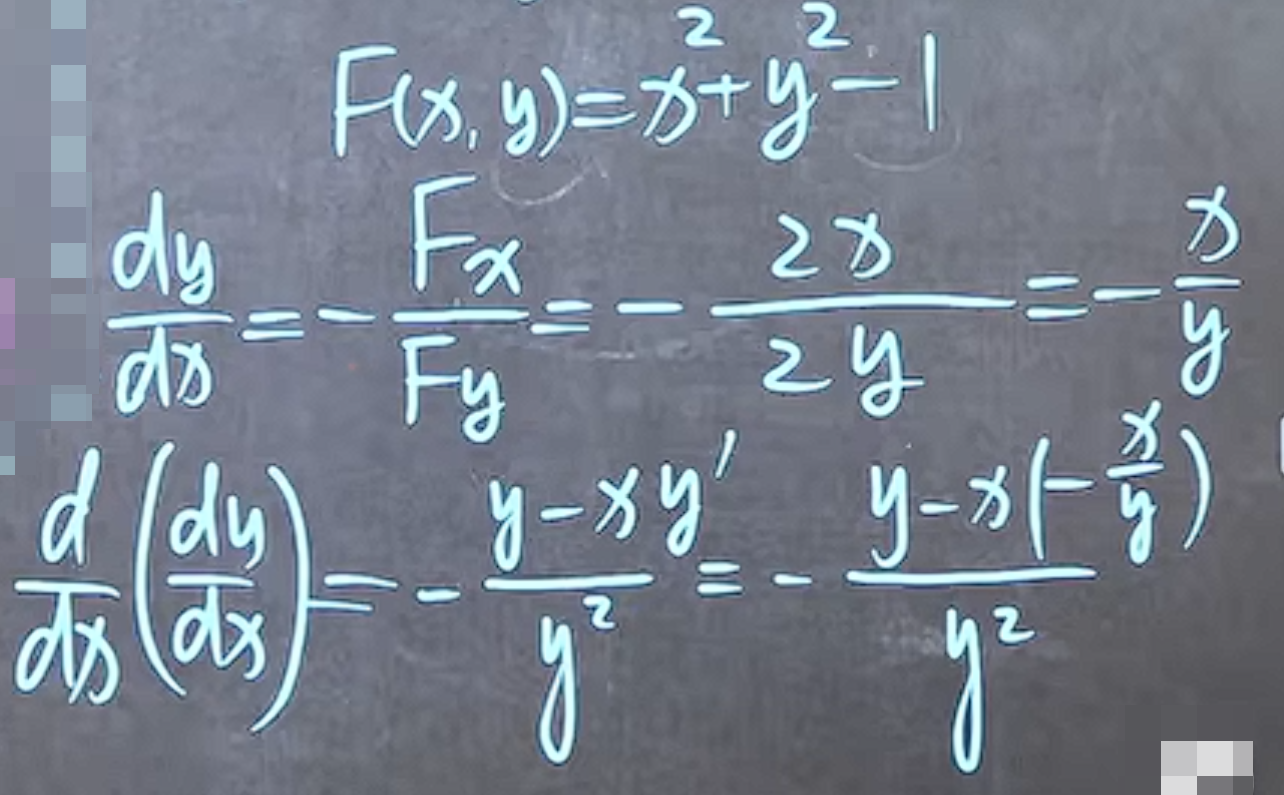 F(x, y) = x² + y² - 1
dy/dx = - Fx/Fy = - 2x/2y = - x/y
d/dx (dy/dx) = - (y - xy′)/y² = - (y - x(-x/y))/y²